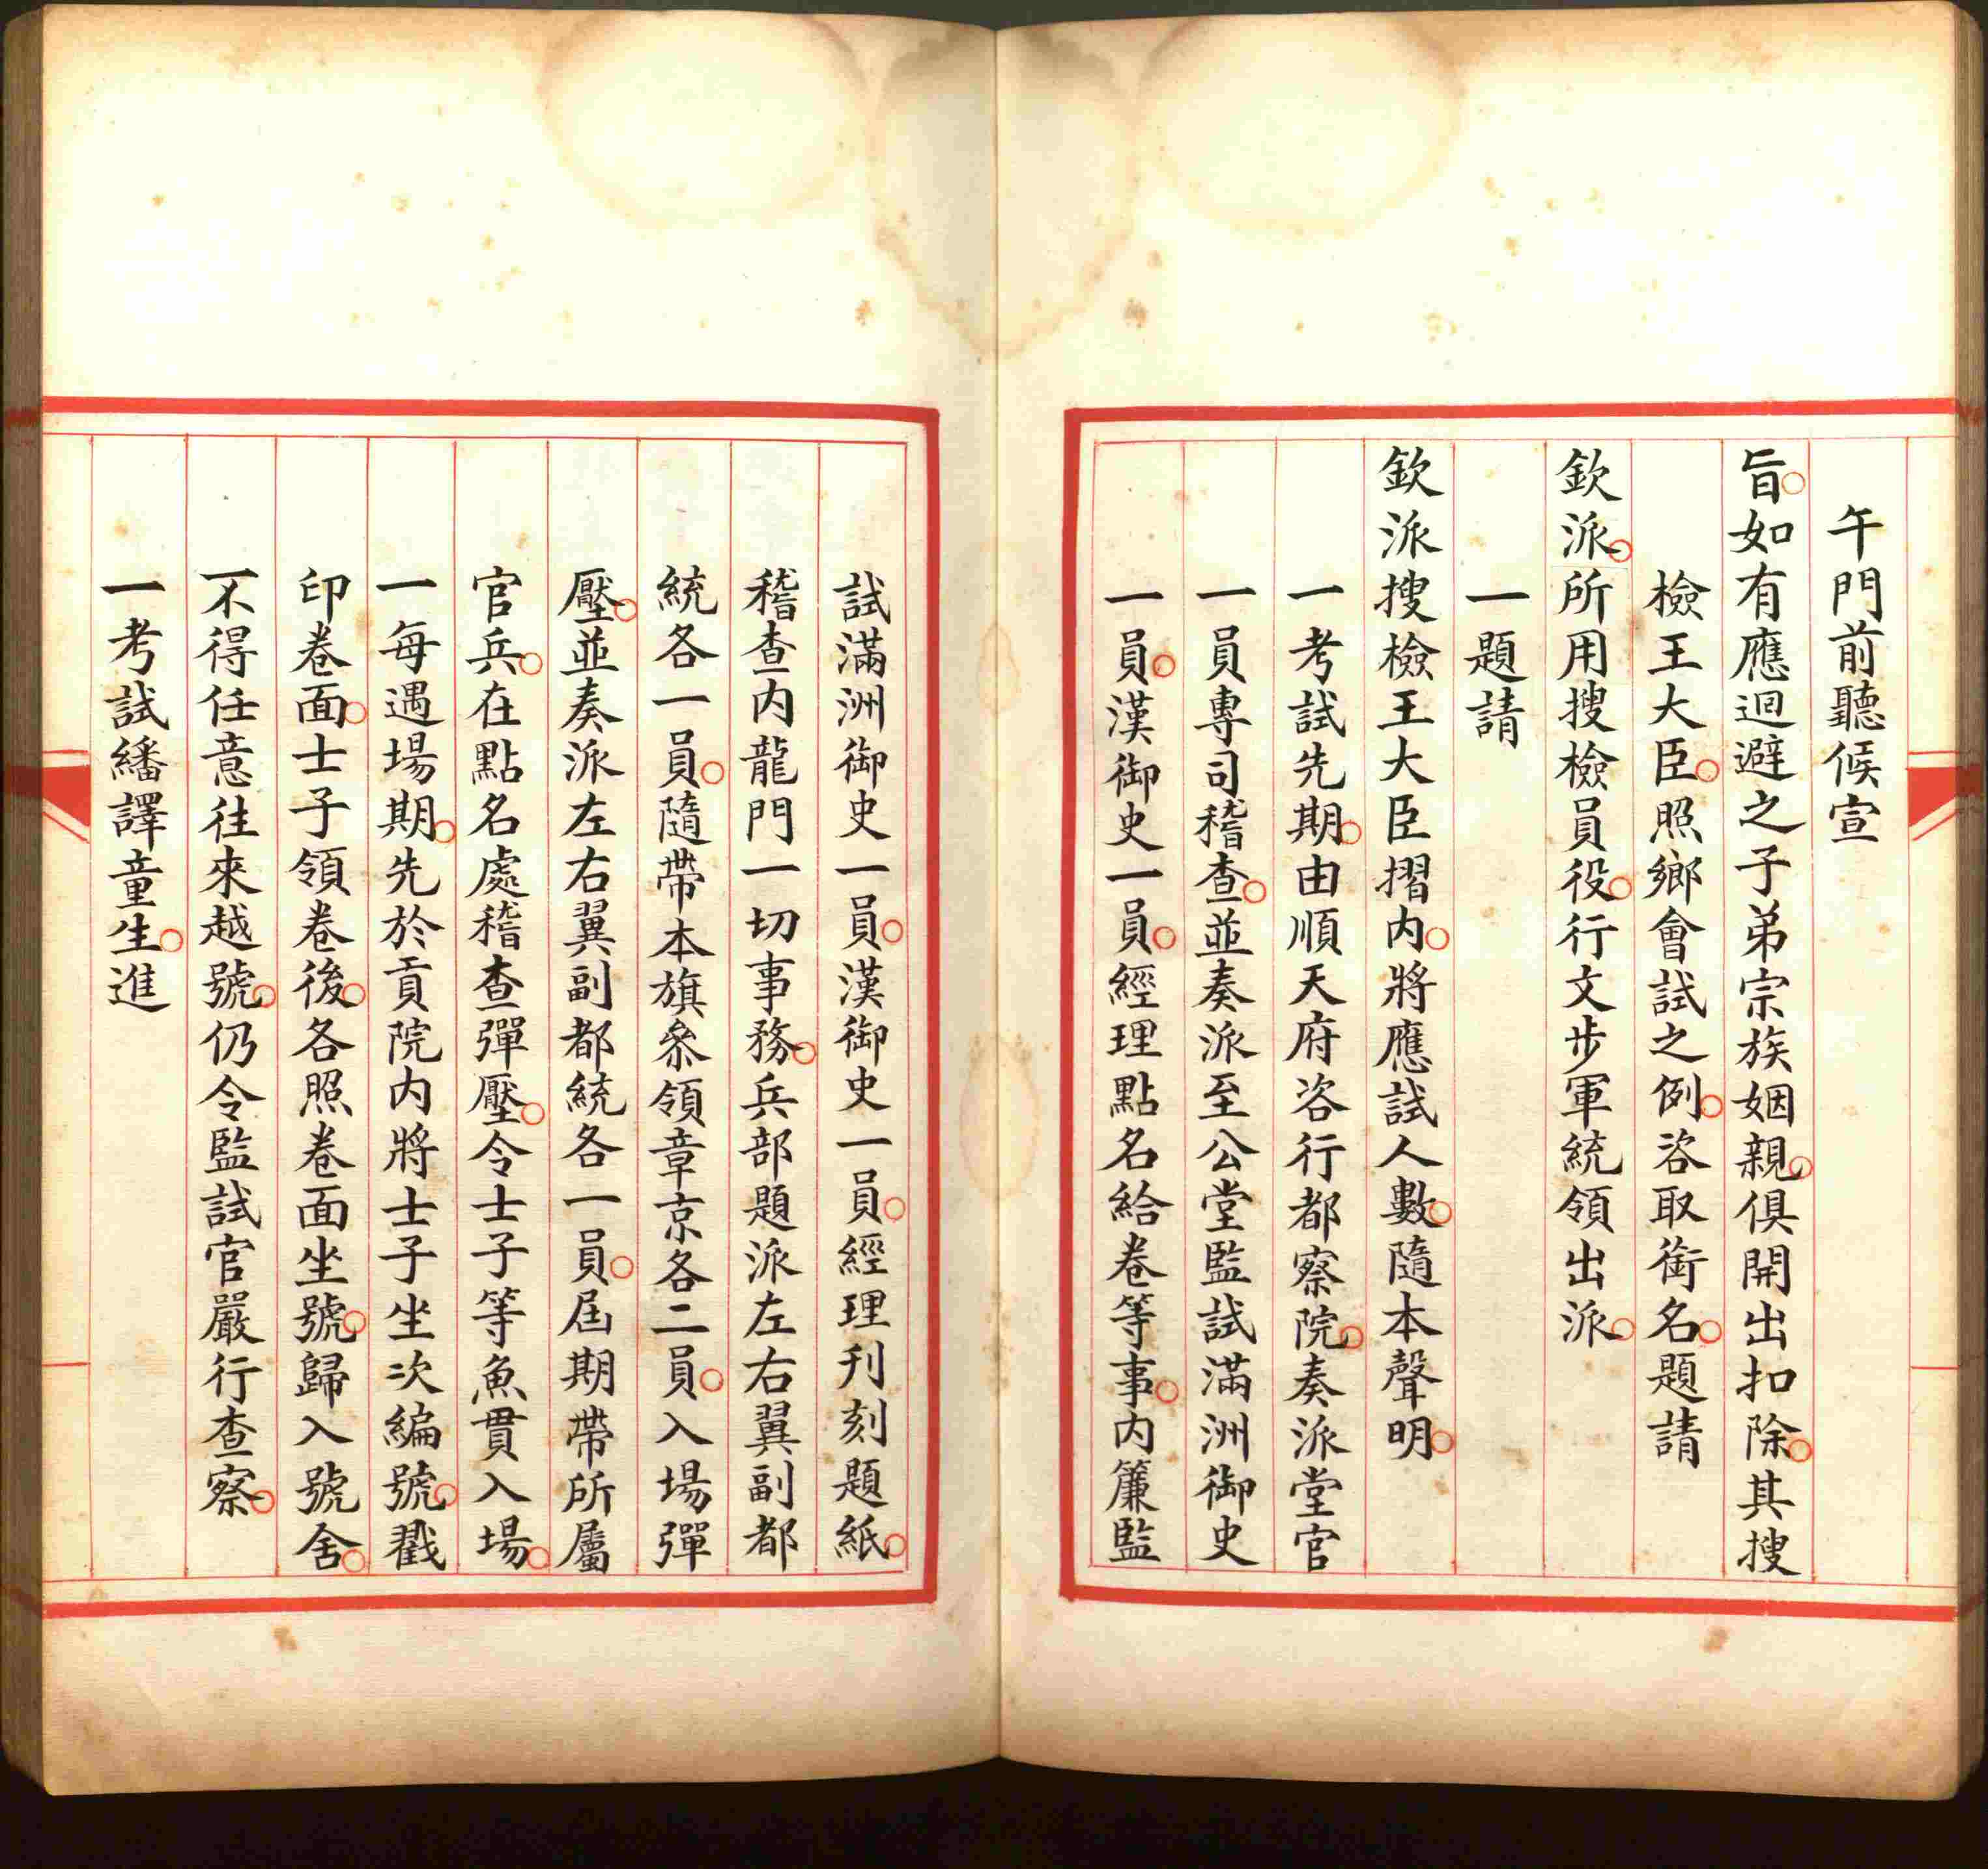 午門前聽候宣
旨○如有應迴避之子弟宗族姻親○俱開出扣除○其搜
檢王大臣○照鄉會試之例○咨取銜名○題請
欽派○所用搜檢員役○行文步軍統領出派○
一題請
欽派搜檢王大臣摺内○將應試人數○隨本聲明○
一考試先期○由順天府咨行都察院○奏派堂官
一員專司稽查○並奏派至公堂監試滿洲御史
一員○漢御史一員○經理點名給卷等事○内簾監
試滿洲御史一員○漢御史一員○經理刋刻題紙○
稽查内龍門一切事務○兵部題派左右翼副都
統各一員○隨帶本旗叅領章京各二員○入場彈
壓○並奏派左右翼副都統各一員○届期帶所屬
官兵○在點名處稽查彈壓○令士子等魚貫入場○
一每遇場期○先於貢院内將士子坐次編號○戳
印卷面○士子領卷後○各照卷面坐號○歸入號舍○
不得任意往來越號○仍令監試官嚴行查察○
一考試繙譯童生○進